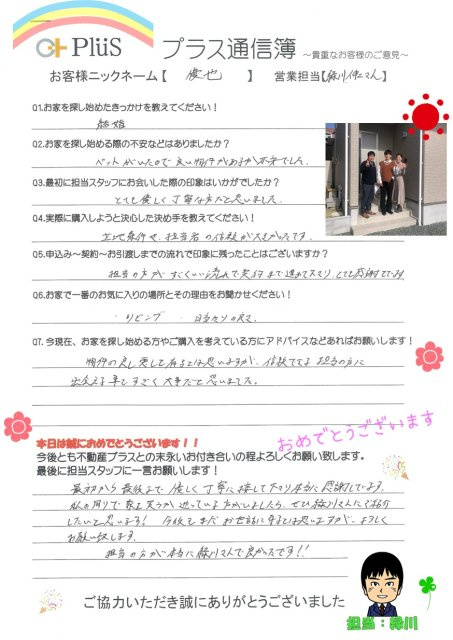 PlüS プラス通信簿 ～貴重なお客様のご意見～
お客様ニックネーム【 俊也 】 営業担当【緑川 さん】
Q1.お家を探し始めたきっかけを教えてください！
結婚
Q2.お家を探し始める際の不安などはありましたか？
ペットがいたので良い物件があるか不安でした。
Q3.最初に担当スタッフにお会いした際の印象はいかがでしたか？
とても優しく丁寧な方だと思いました。
Q4.実際に購入しようと決心した決め手を教えてください！
立地条件や、担当者の信頼が大きかったです。
Q5.申込み～契約～お引渡しまでの流れで印象に残ったことはございますか？
担当の方がすごくいい流れで契約まで進めて下さり、とても感謝してます
Q6.お家で一番のお気に入りの場所とその理由をお聞かせください！
・リビング ・日当たりの良さ
Q7.今現在、お家を探し始める方やご購入を考えている方にアドバイスなどあればお願いします！
物件の良し悪しも有るとは思いますが、信頼できる担当の方に
出会える事もすごく大事だと思いました。
本日は誠におめでとうございます！！
おめでとうございます
今後とも不動産プラスとの末永いお付き合いの程よろしくお願い致します。
最後に担当スタッフに一言お願いします！
最初から最後まで優しく丁寧に接して下さり本当に感謝しています。
私の周りで家を買うか迷っている方がいましたら、ぜひ緑川さんにご紹介
したいと思います！ 今後ともまだお世話になるとは思いますが、よろしく
お願い致します。
担当の方が本当に緑川さんで良かったです！！
ご協力いただき誠にありがとうございました
担当：緑川